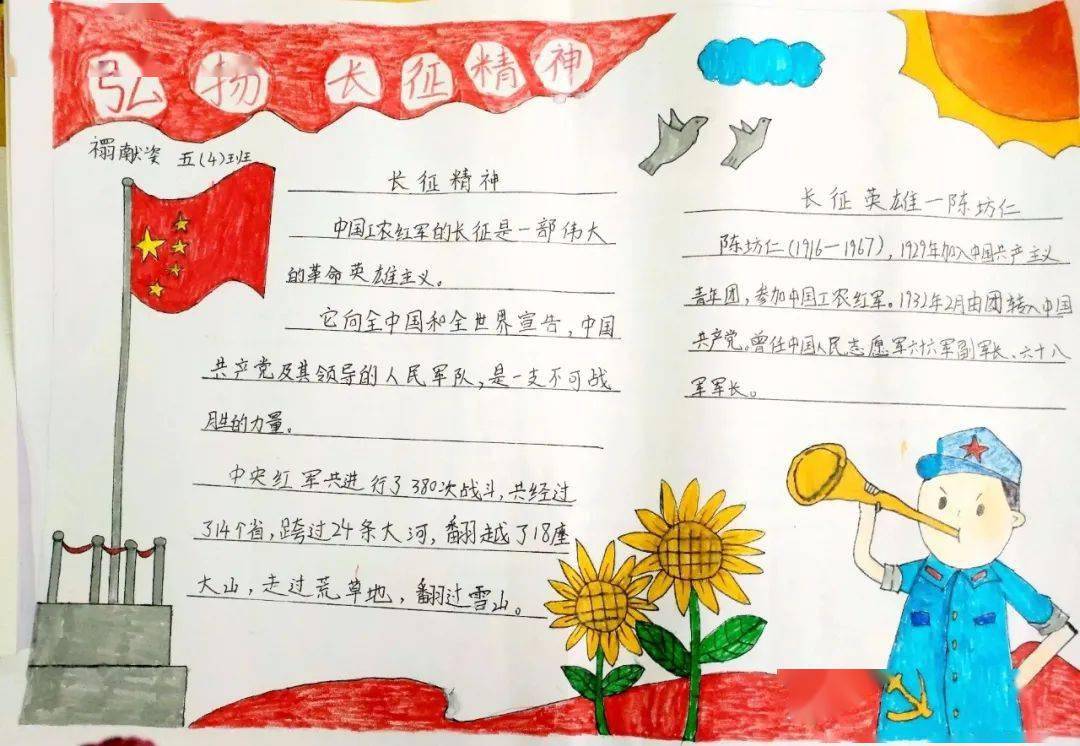 弘扬长征精神
禤献姿 五(4)班
长征精神
中国工农红军的长征是一部伟大
的革命英雄主义。
它向全中国和全世界宣告,中国
共产党及其领导的人民军队,是一支不可战
胜的力量。
中央红军共进行了380次战斗,共经过
了14个省,跨过24条大河,翻越了18座
大山,走过荒草地,翻过雪山。
长征英雄—陈坊仁
陈坊仁(1916—1967),1929年加入中国共产主义
青年团,参加中国工农红军。1932年2月由团转入中国
共产党。曾任中国人民志愿军六十六军副军长、六十八
军军长。